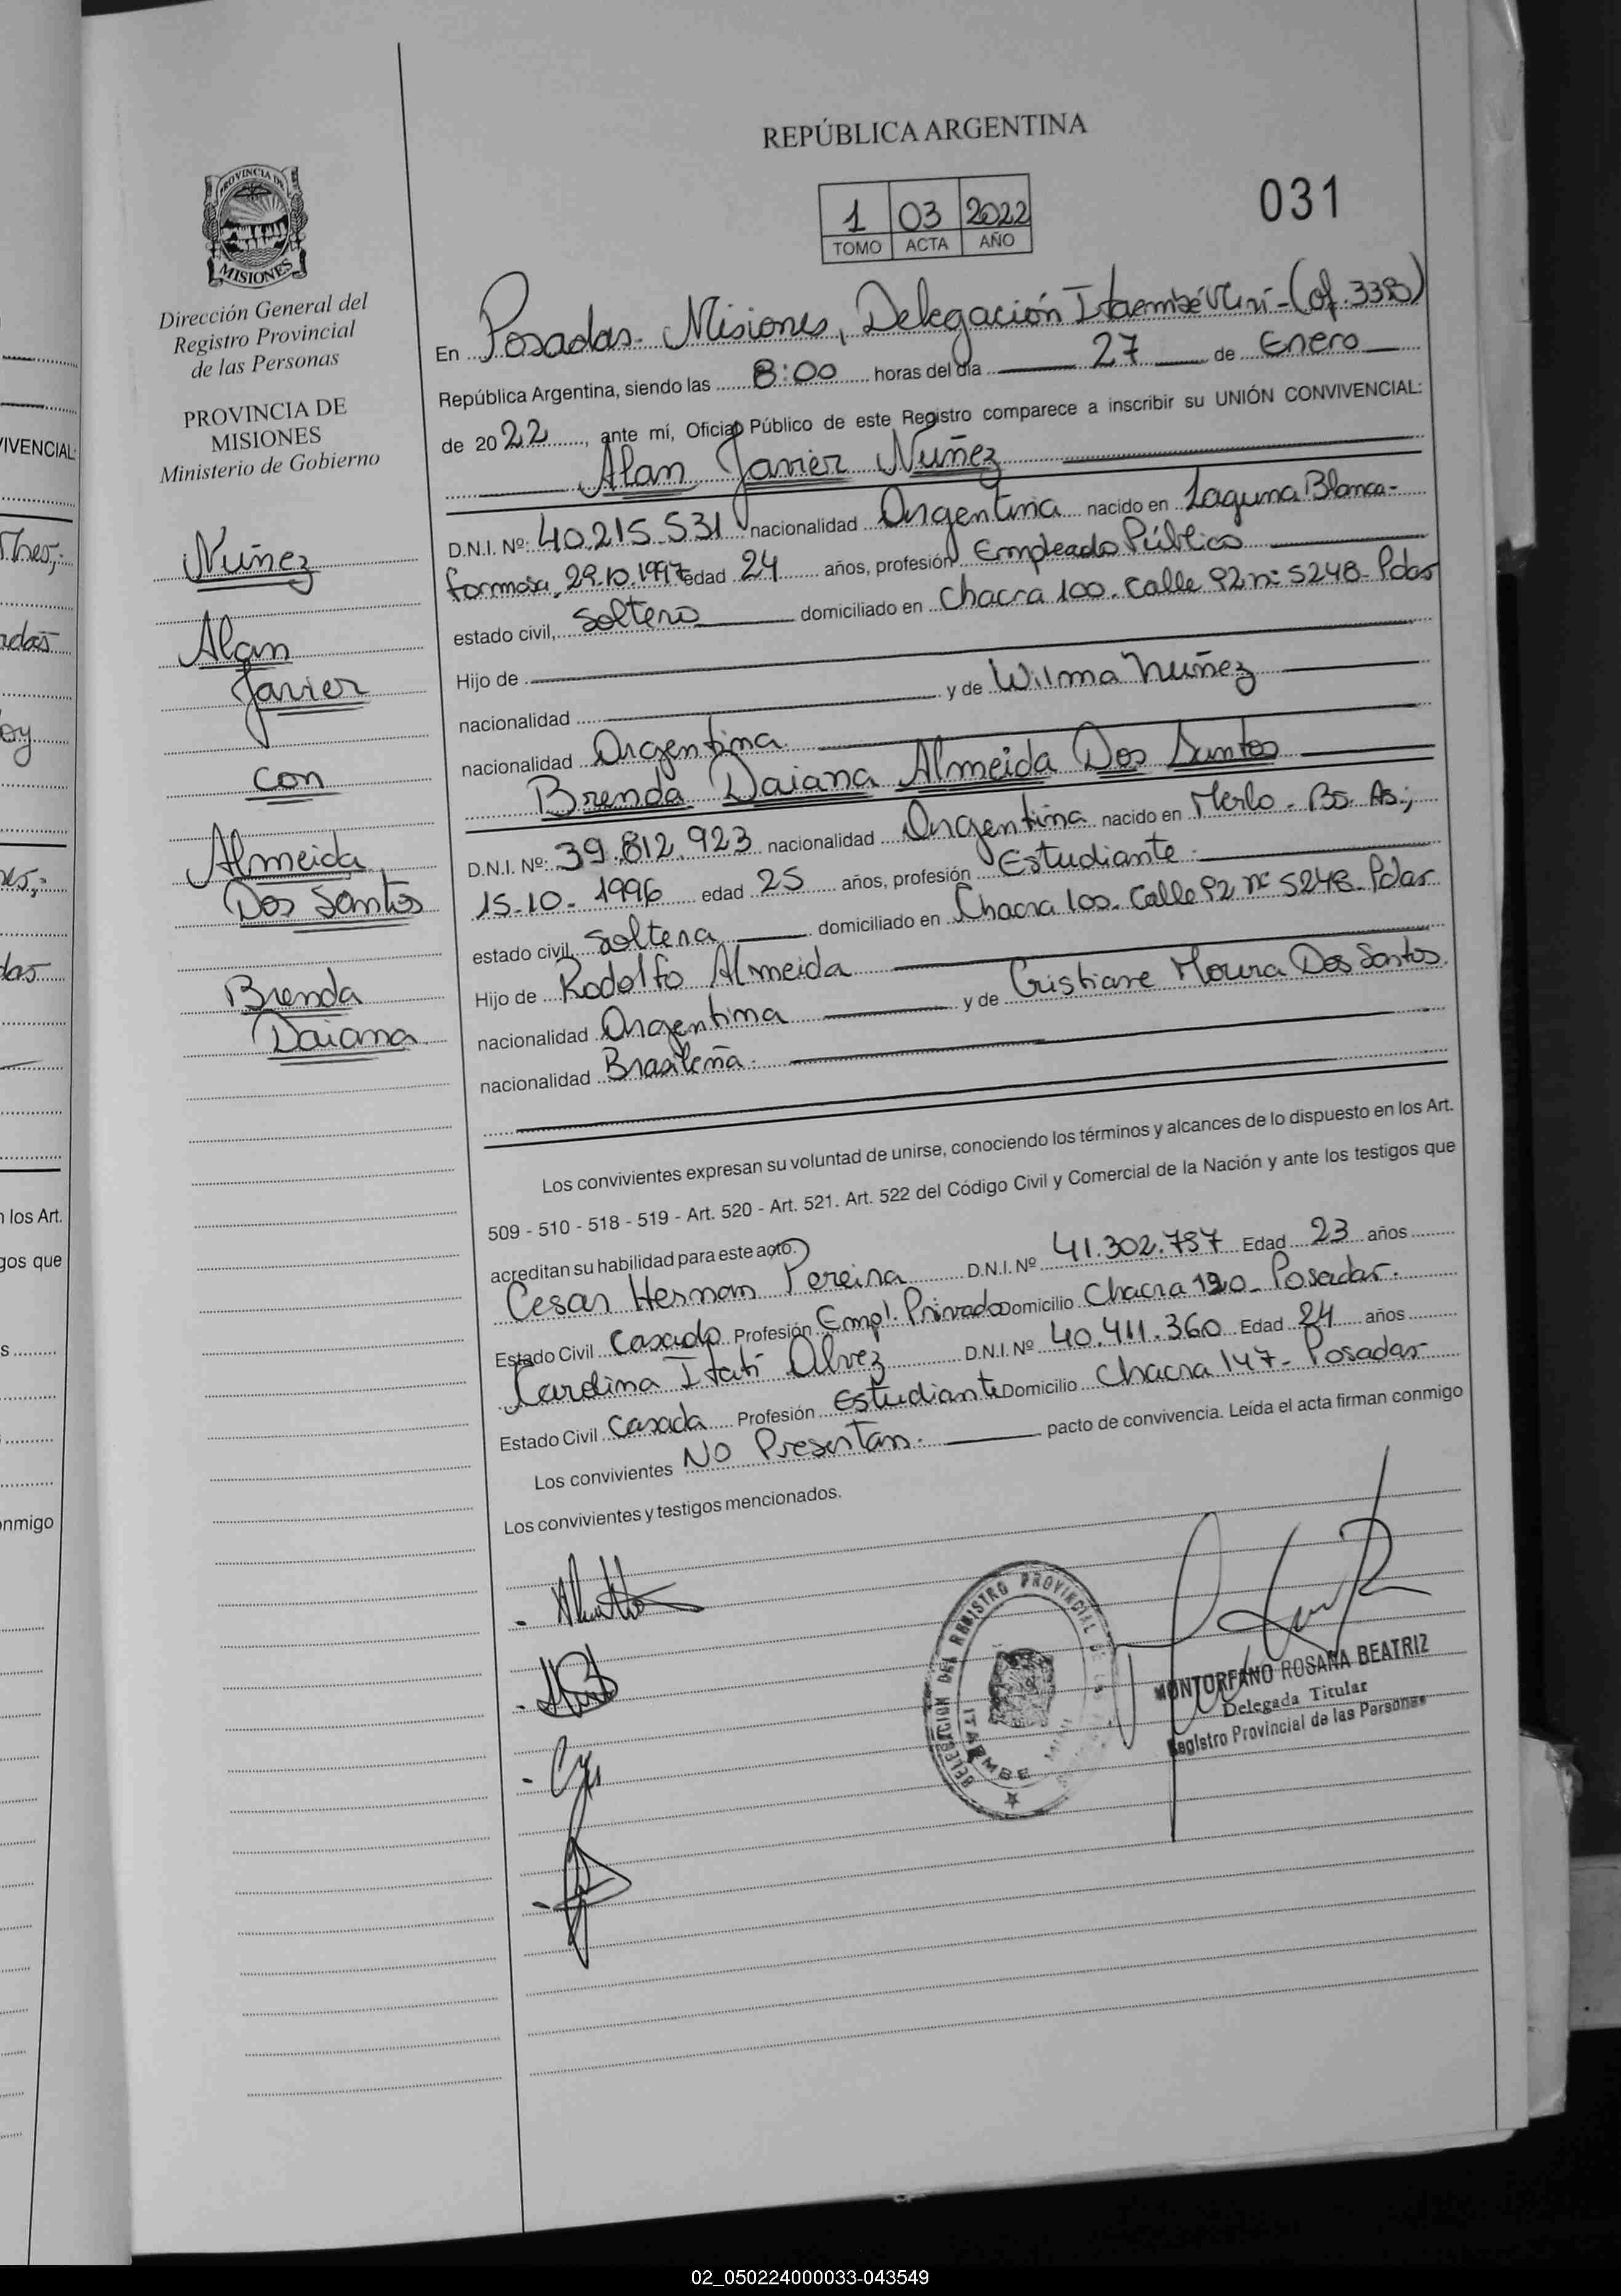 REPÚBLICA ARGENTINA
1 03 2022
TOMO ACTA AÑO
031
PROVINCIA DE
MISIONES
Dirección General del
Registro Provincial
de las Personas
PROVINCIA DE
MISIONES
Ministerio de Gobierno
Nuñez
Alan
Javier
con
Almeida
Dos Santos
Brenda
Daiana.
En Posadas. Misiones, Delegación Itaembé Miní-(of. 33B)
República Argentina, siendo las 8:00 horas del día 27 de Enero
de 2022, ante mí, Oficial Público de este Registro comparece a inscribir su UNIÓN CONVIVENCIAL:
Alan Javier Nuñez
D.N.I. Nº: 40.215.531 nacionalidad Argentina nacido en Laguna Blanca-
formosa, 29.10.1997 edad 24 años, profesión Empleado Público
estado civil, Soltero domiciliado en Chacra 100. Calle 92 nº 5248- Pdas
Hijo de
nacionalidad y de Wilma Nuñez
nacionalidad Argentina.
Brenda Daiana Almeida Dos Santos
D.N.I. Nº: 39.812.923 nacionalidad Argentina nacido en Merlo - Bs. As.;
15-10- 1996 edad 25 años, profesión Estudiante.
estado civil, Soltera domiciliado en Chacra 100. Calle 92 nº 5248- Pdas.
Hijo de Rodolfo Almeida
nacionalidad Argentina y de Cristiane Moura Dos Santos.
nacionalidad Brasileña.
Los convivientes expresan su voluntad de unirse, conociendo los términos y alcances de lo dispuesto en los Art.
509 - 510 - 518 - 519 - Art. 520 - Art. 521. Art. 522 del Código Civil y Comercial de la Nación y ante los testigos que
acreditan su habilidad para este acto.
Cesar Hernan Pereira D.N.I. Nº 41.302.737 Edad 23 años
Estado Civil Casado Profesión Empl. Privado Domicilio Chacra 190- Posadas.
Carolina Itatí Alvez D.N.I. Nº 40.411.360 Edad 24 años
Estado Civil Casada Profesión Estudiante Domicilio Chacra 147- Posadas-
Los convivientes No Presentan. pacto de convivencia. Leída el acta firman conmigo
Los convivientes y testigos mencionados.
DELEGACION DEL REGISTRO PROVINCIAL DE LAS
ITAEMBE MINI
MONTORFANO ROSANA BEATRIZ
Delegada Titular
Registro Provincial de las Personas
VIVENCIAL:
los Art.
gos que
onmigo
02_050224000033-043549